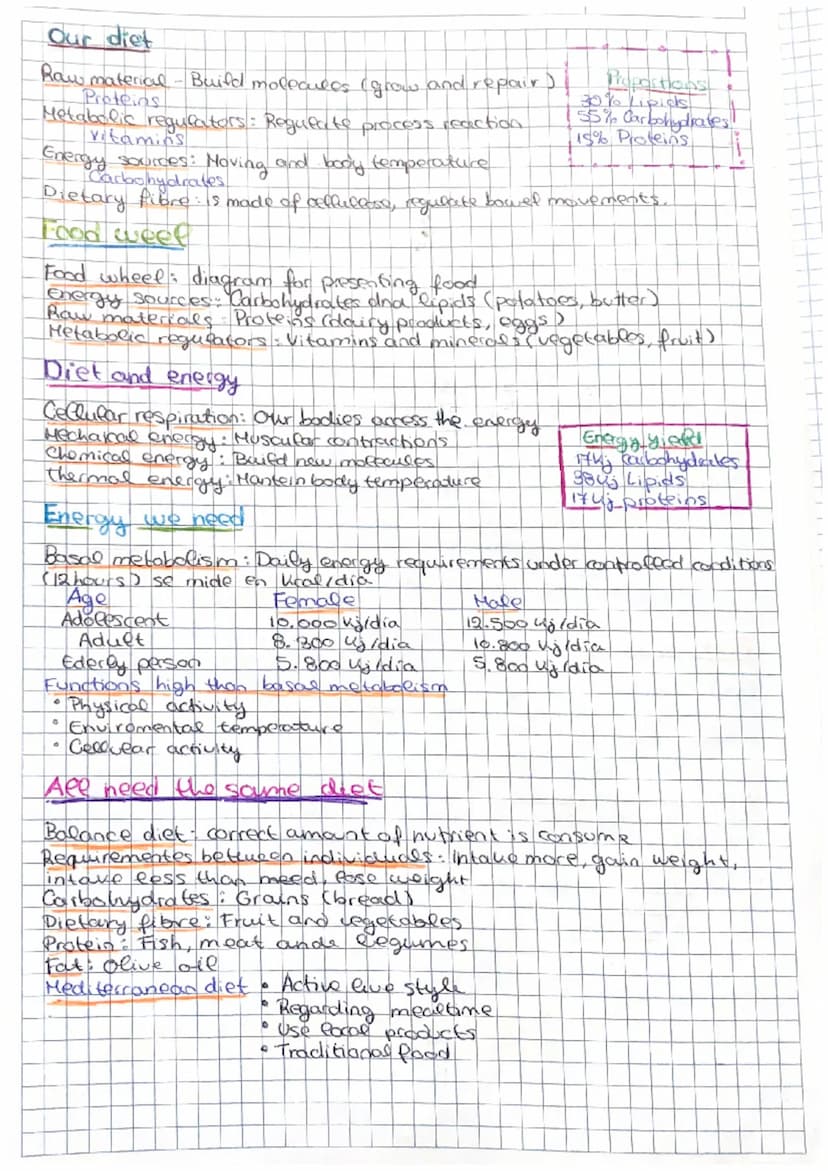 Our diet
Raw material - Build molecules (grow and repair)
Proteins
Metabolic regulators: Regulate process reaction
vitamins
Energy sources: Moving and body temperature
Carbohydrates
Dietary fibre: is made of cellulose, regulate bowel movements.
Proportions
30% Lipids
55% Carbohydrates
15% Proteins
Food weel
Food wheel: diagram for presenting food
Energy sources: Carbohydrates and lipids (potatoes, butter)
Raw materials: Proteins (dairy products, eggs)
Metabolic regulators: Vitamins and minerals (vegetables, fruit)
Diet and energy
Cellular respiration: Our bodies access the energy
Mechaical energy: Muscular contractions
Chemical energy: Build new molecules
Thermal energy: Mantein body temperature
Energy yield
17kj Carbohydrates
38kj Lipids
17kj proteins
Energy we need
Basal metabolism: Daily energy requirements under controlled conditions
(12 hours) se mide en kcal/dia
Age Female Male
Adolescent 10.000 kj/dia 12.500 kj/dia
Adult 8.300 kj/dia 10.800 kj/dia
Ederly person 5.800 kj/dia 5.800 kj/dia
Functions high than basal metabolism
• Physical activity
• Enviromental temperature
• Celluear activity
All need the same diet
Balance diet: correct amount of nutrient is consume
Requirementes between individuales: Intake more, gain weight,
intake less than meed, lose weight
Carbohydrates: Grains (bread)
Dietary fibre: Fruit and vegetables
Protein: Fish, meat ande legumes
Fat: Olive oil
Mediterranean diet • Active live style
• Regarding mealtime
• Use local products
• Traditional food